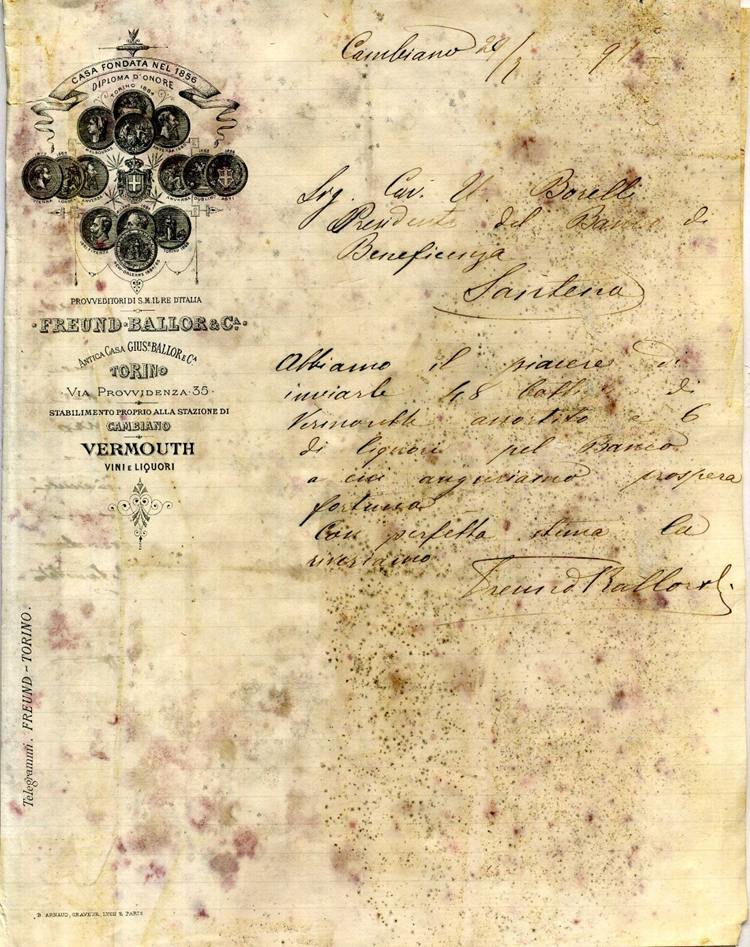 CASA FONDATA NEL 1856
DIPLOMA D'ONORE
TORINO 1884
PROVVEDITORI DI S.M. IL RE D'ITALIA
FREUND·BALLOR & Cª.
ANTICA CASA GIUSᴱ BALLOR & Cª
TORINO
VIA PROVVIDENZA·35·
STABILIMENTO PROPRIO ALLA STAZIONE DI
CAMBIANO
VERMOUTH
VINI E LIQUORI
Telegrammi. FREUND - TORINO.
B. ARNAUD, GRAVEUR, LYON & PARIS
Cambiano
Sig. Cav. U. Borelli
Presidente del Banco di
Beneficenza
Santena
Abbiamo il piacere di
inviarle 48 Bott. di
Vermouth assortito e 6
di liquori pel Banco
a cui auguriamo prospera
fortuna
Con perfetta stima la
riveriamo
Freund Ballor & C.